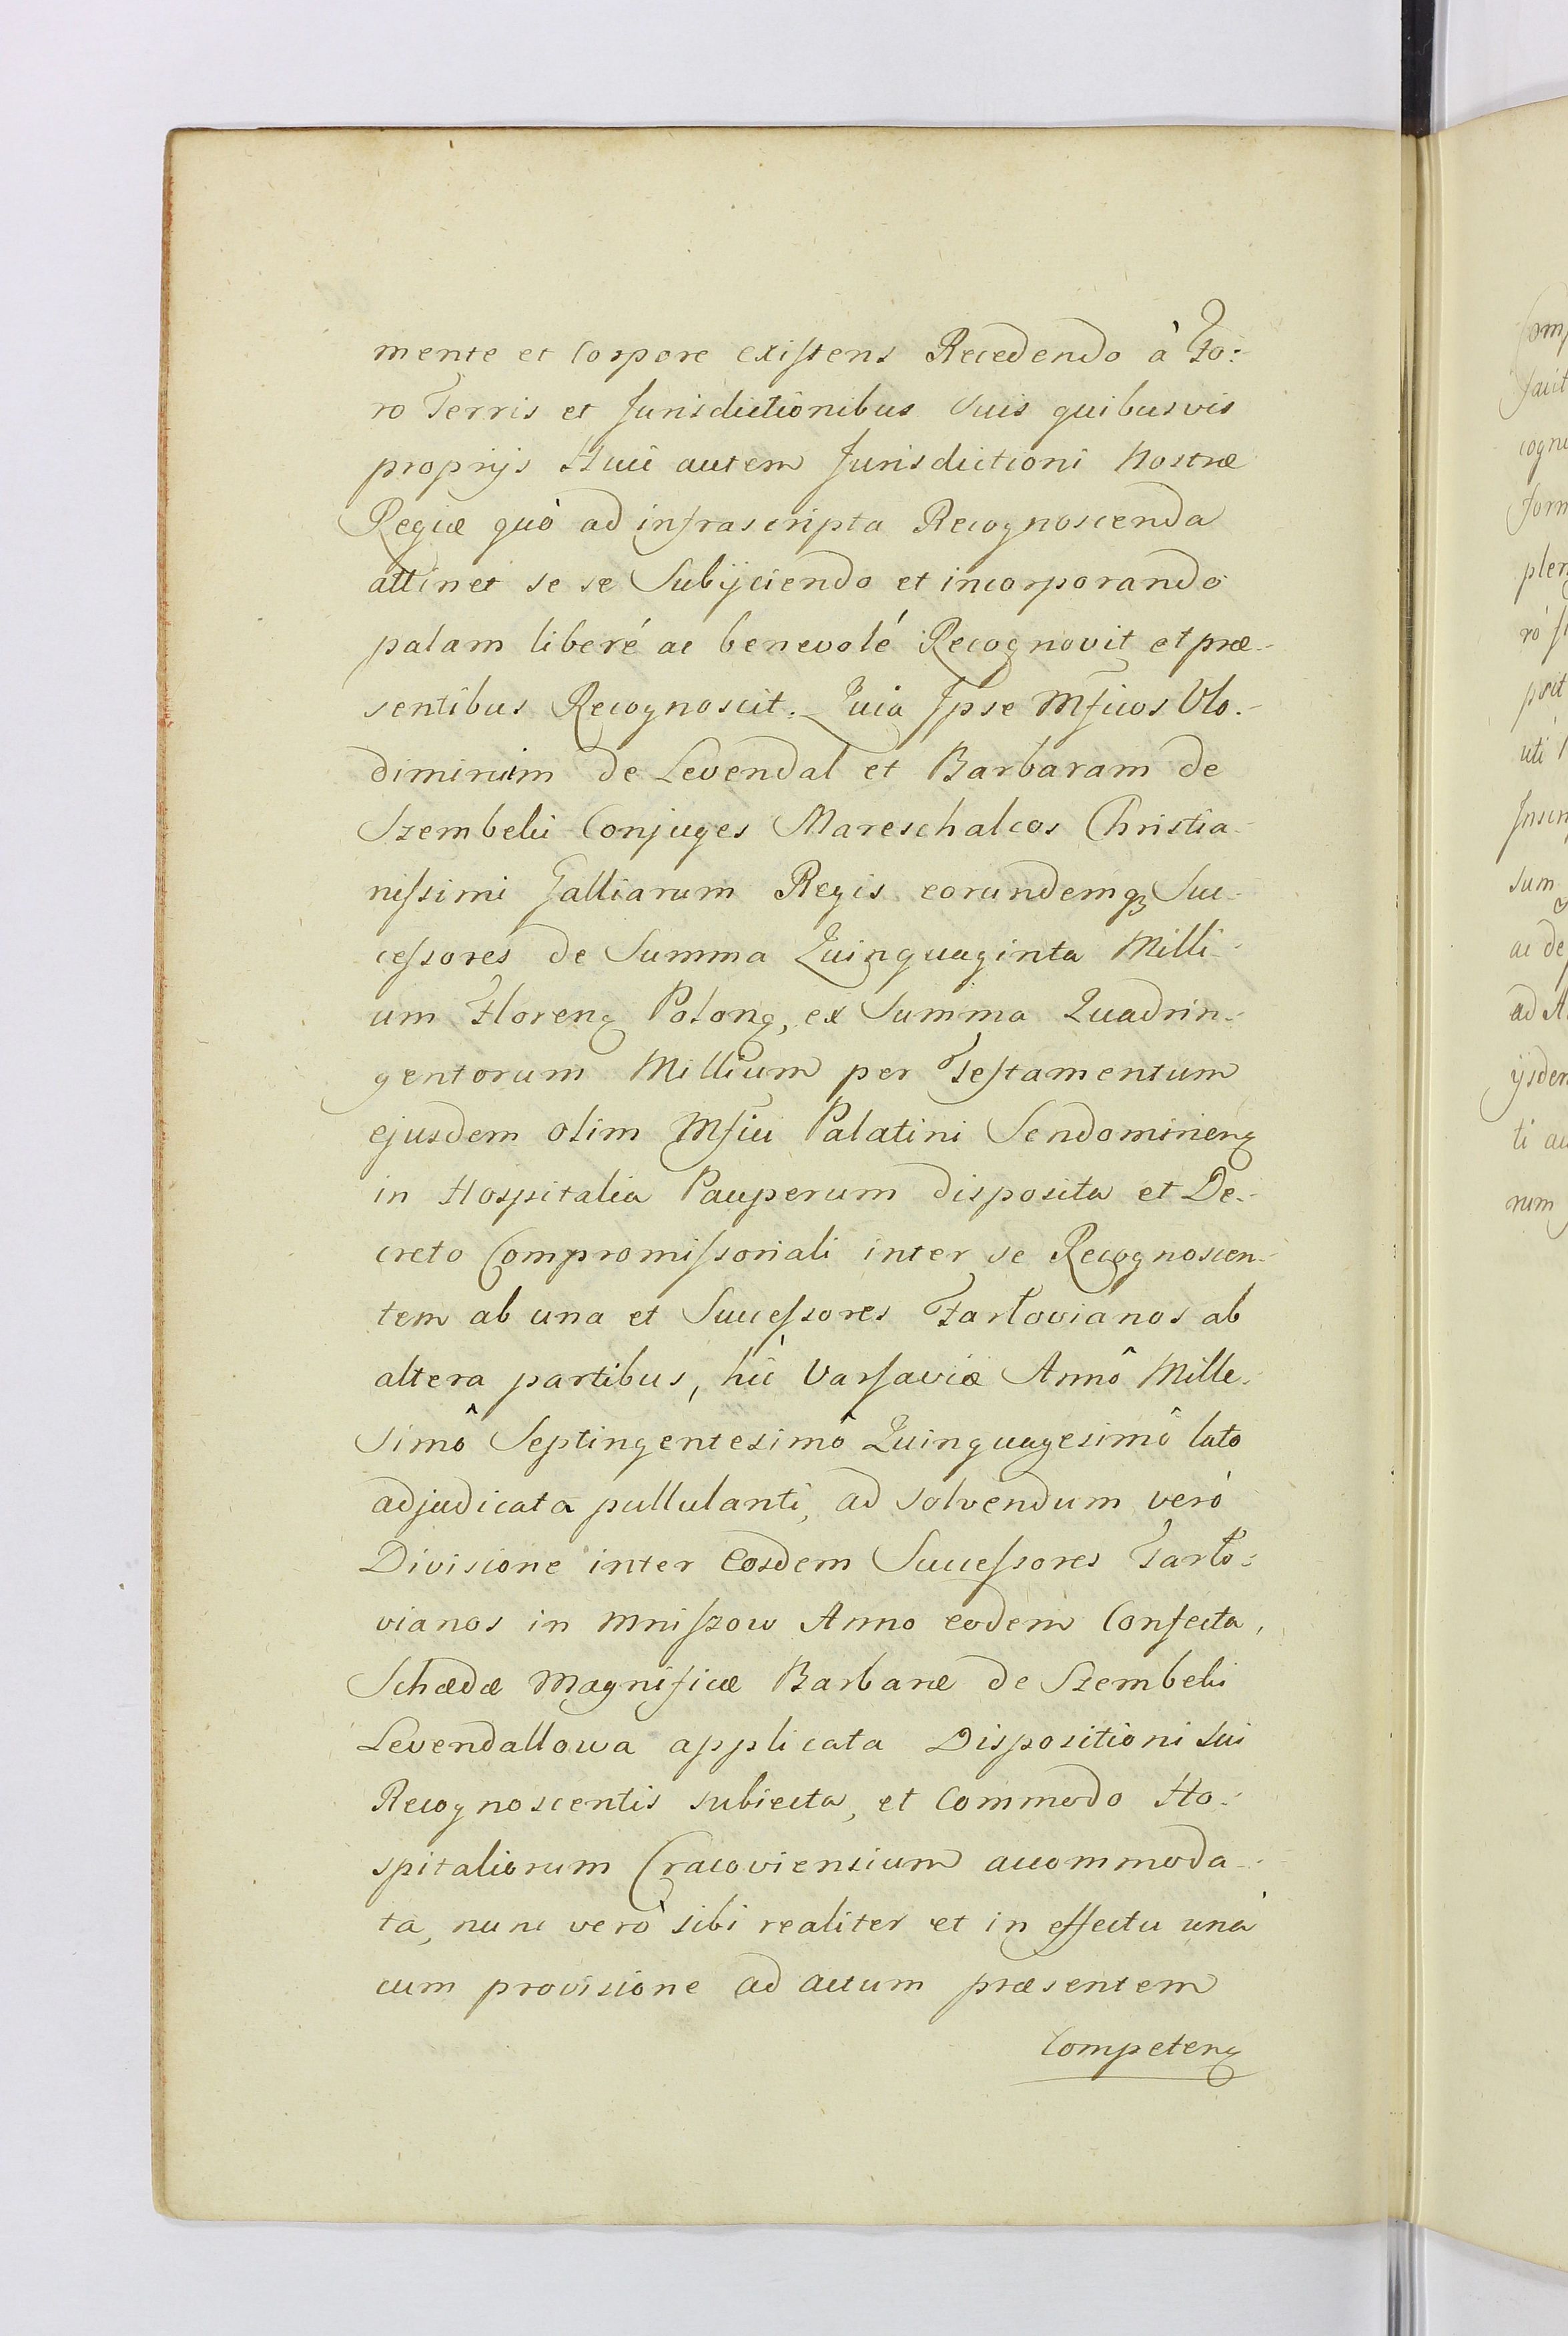 mente et Corpore existens Recedendo à Fo:
ro Terris et Jurisdictionibus Suis quibusvis
proprijs Huic autem Jurisdictioni Nostræ
Regiæ quò ad infrascripta Recognoscenda
attinet se se Subijciendo et incorporando
palam liberé ac benevolé Recognovit et præ-
sentibus Recognoscit. Quia Ipse Mficos Vlo-
dimirum de Levendal et Barbaram de
Szembeki Conjuges Mareschalcos Christia-
nissimi Galliarum Regis eorundemqꝫ Suc-
cessores de Summa Quinquaginta Milli-
um Florenꝫ Polonꝫ, ex Summa Quadrin-
gentorum Millium per Testamentum
ejusdem olim Mfici Palatini Sendomirienꝫ
in Hospitalia Pauperum disposita et De-
creto Compromissoriali inter se Recognoscen-
tem ab una et Successores Tarlovianos ab
altera partibus, hìc Varsaviæ Annô Mille-
simô Septingentesimô Quinquagesimô lato
adjudicata pullulanti, ad solvendum verò
Divisione inter Eosdem Successores Tarło-
vianos in Mniszow Anno eodem Confecta,
Schædæ Magnificæ Barbaræ de Szembeki
Levendallowa applicata Dispositioni Sui
Recognoscentis subiecta, et Commodo Ho-
spitaliorum Cracoviensium accommoda-
ta, nunc verò sibi realiter et in effectu unà
cum provisione ad actum præsentem
Competenꝫ